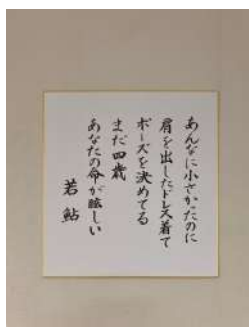 あんなに小さかったのに
肩を出したドレス着て
ポーズを決めてる
まだ四歳
あなたの命が眩しい
若鮎